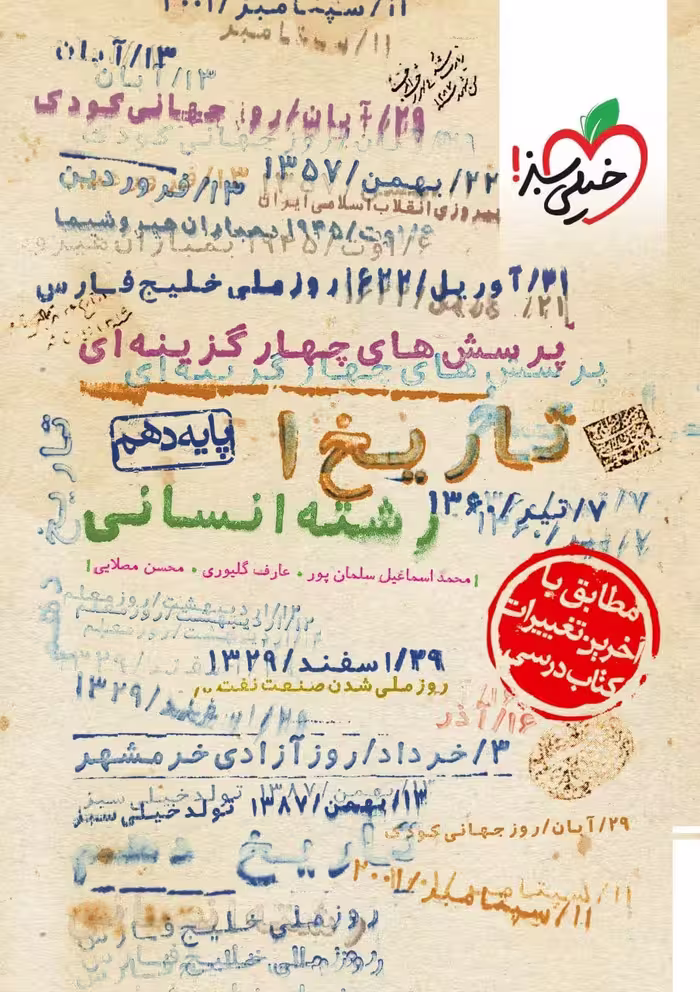 ۱۱/سپتامبر/۲۰۰۱
۱۱/سپتامبر
۱۳/آبان
۱۳/آبان
۲۹/آبان/روز جهانی کودک
خیلی سبز!
۲۲/بهمن/۱۳۵۷
۱۳/فروردین
پیروزی انقلاب اسلامی ایران
۶/اوت/۱۹۴۵ بمباران هیروشیما
۳۱/آوریل/۱۶۲۲/روز ملی خلیج فارس
پرسش های چهارگزینه ای
پرسش های چهارگزینه ای
تاریخ ۱
پایه دهم
تاریخ دهم
رشته انسانی
۷/تیر/۱۳۶۰
محمد اسماعیل سلمان پور • عارف گلیوری • محسن مصلایی
مطابق با
آخرین تغییرات
کتاب درسی
۱۲/اردیبهشت/روز معلم
۱۲/اردیبهشت/روز معلم
۲۹/اسفند/۱۳۲۹
روز ملی شدن صنعت نفت
۱۶/آذر
۳/خرداد/روز آزادی خرمشهر
۱۳/بهمن/۱۳۸۷ تولد خیلی سبز
۲۹/آبان/روز جهانی کودک
تاریخ دهم
۱۱/سپتامبر/۲۰۰۱
رشته انسانی
روز ملی خلیج فارس
روز ملی خلیج فارس